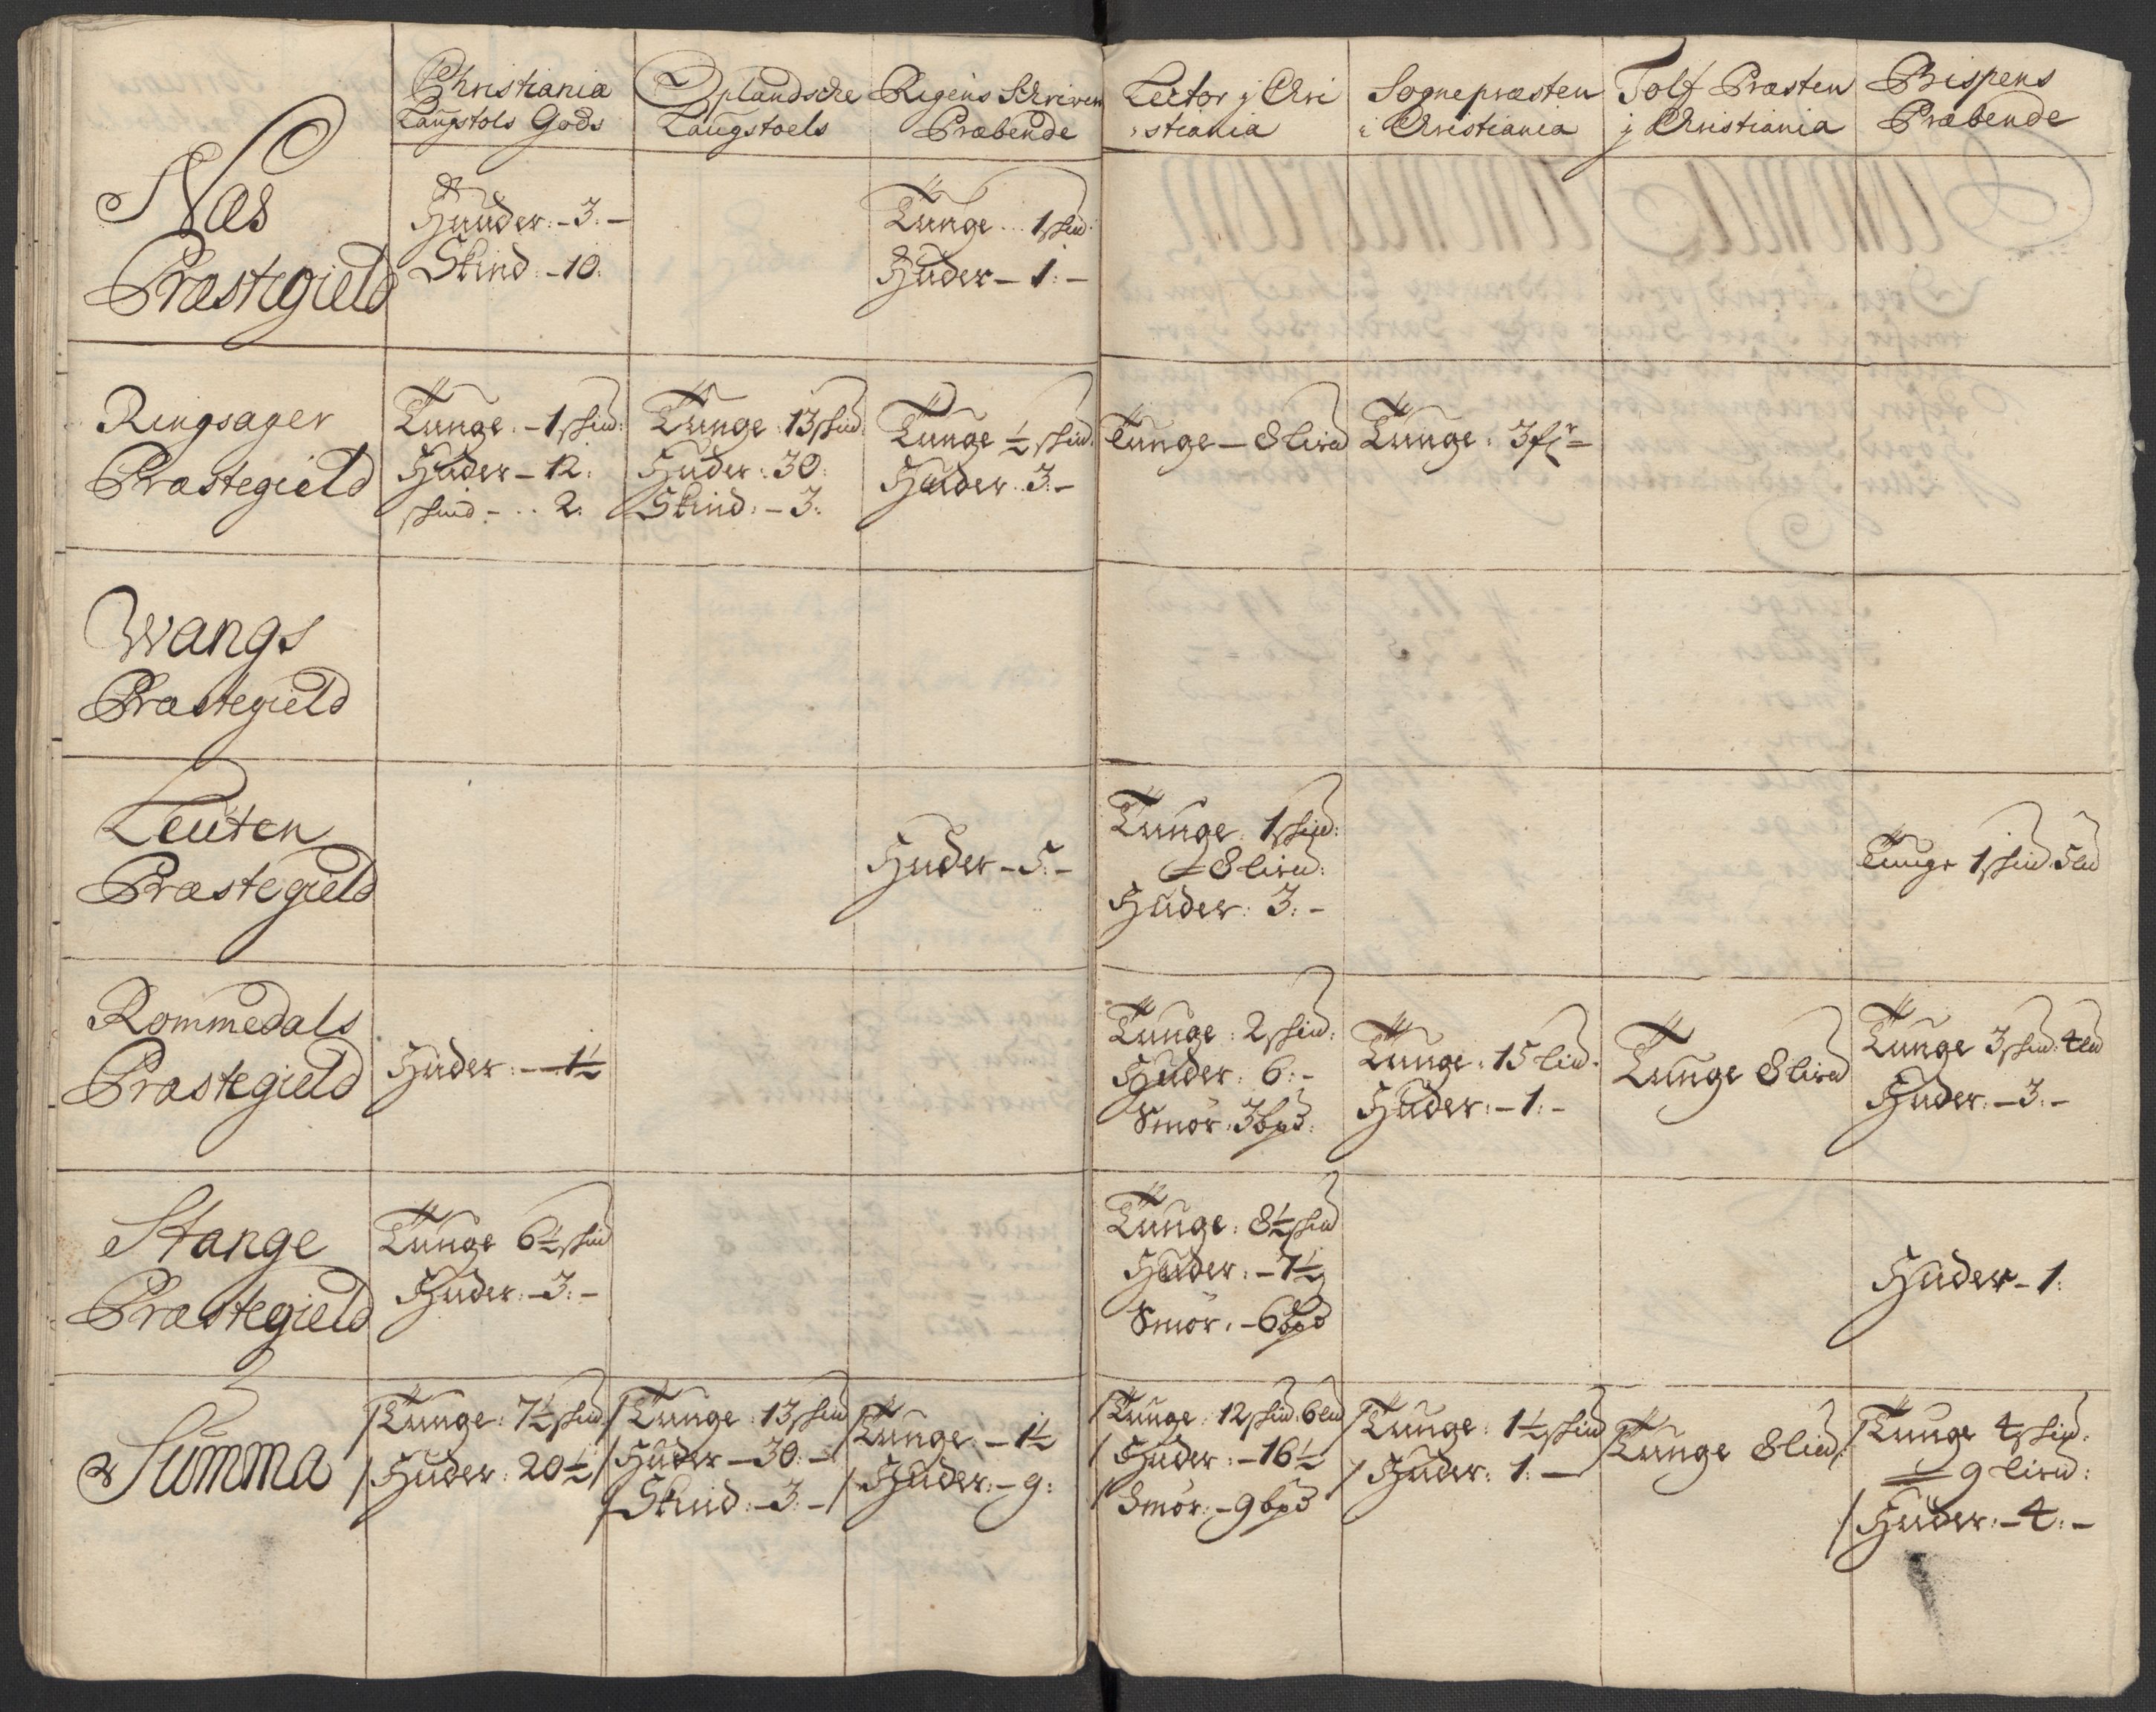 Christiania
Laugstols Gods
Oplandsche
Laugstoels
Rigens Schriven
Præbende
Lector j Chri
stiania
Sognepræsten
i Christiania
Tolf Præsten
j Christiania
Bispens
Præbende
Næs
Præstegield
Huuder: - 3: -
Skind: - 10:
Tunge .. 1 skid:
Huder - 1: -
Ringsager
Præstegield
Tunge: - 1 skid:
Huder - 12:
skid - .. 2:
Tunge: 13 skid
Huder: 30:
Skind: - 3:
Tunge ½ skid:
Huder: 3: -
Tunge - 8 lisd
Tunge: 3 fr -
Wangs
Præstegield
Leuten
Præstegield
Huder - 5: -
Tunge: 1 skid:
8 lisd:
Huder: 3: -
Tunge 1 skid 5 ld
Rommedals
Præstegield
Huder: - 1½
Tunge: 2 skid:
Huder: 6: -
Smör: 3 bpd:
Tunge: 15 lisd:
Huder: - 1: -
Tunge 8 lisd
Tunge 3 skid: 4 ld
Huder: - 3: -
Stange
Præstegield
Tunge 6½ skid
Huder: - 3: -
Tunge: 8½ skid
Huder: - 7½
Smör: - 6 bpd
Huder - 1:
Summa
Tunge: 7½ skid
Huder: 20½
Tunge: 13 skid
Huder - 30: -
Skind: - 3: -
Tunge: - 1½
Huder: - 9:
Tunge: 12 skid: 6 ld
Huder: - 16½
Smör: - 9 bpd
Tunge: 1½ skid
Huder: 1: -
Tunge 8 lisd:
Tunge 4 skid:
9 lisd:
Huder: - 4: -